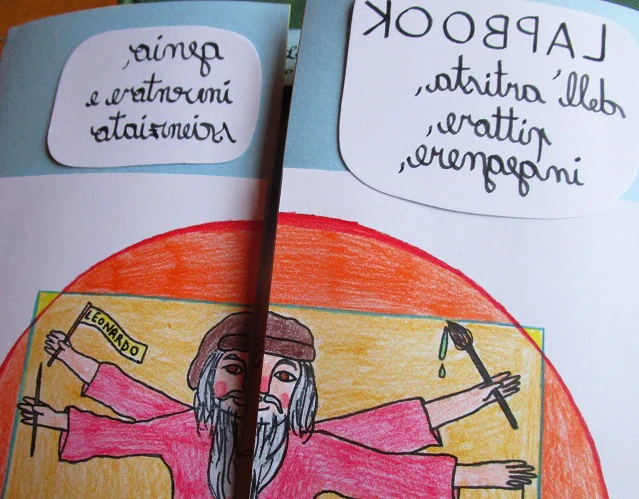 LAPBOOK
dell'artista,
pittore,
ingegnere,
genio,
inventore e
scienziato
LEONARDO